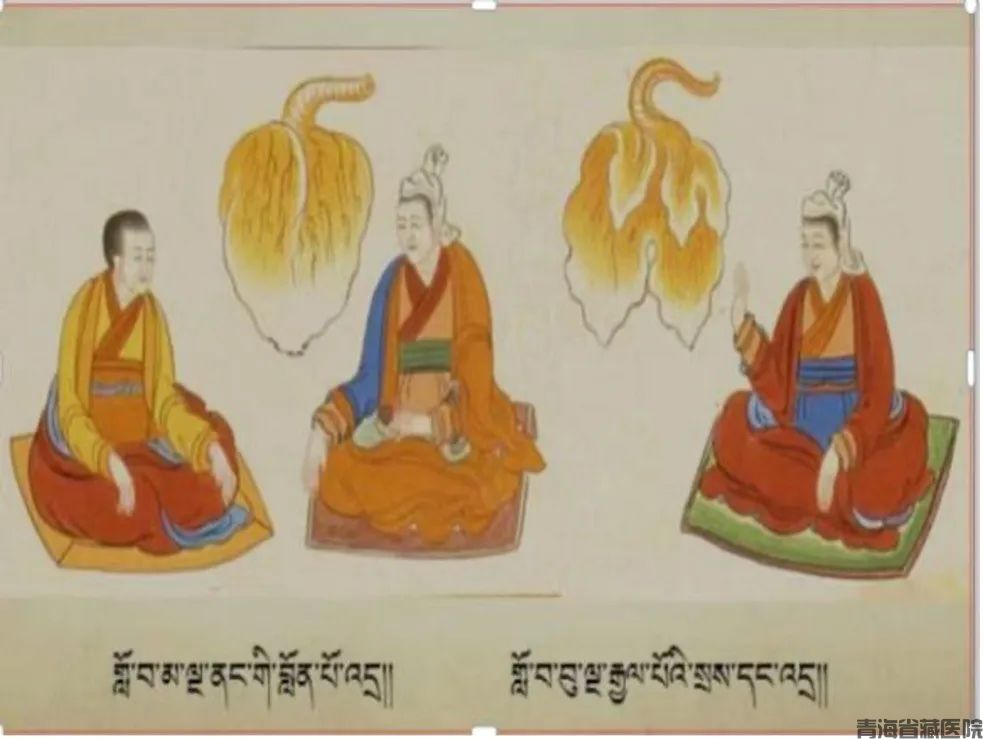 གློ་བ་མ་ལྔ་ནང་གི་བློན་པོ་འདྲ།།
གློ་བ་བུ་ལྔ་རྒྱལ་པོའི་སྲས་དང་འདྲ།།
青海省藏医院